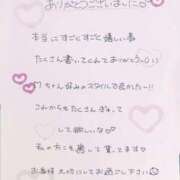 ありがとうございました♡
本当にすごすごと嬉しい事
たくさん書いてくれてありがとう
ちゃん好みのスタイルで良かったー!!
これからもたくさん
して欲しいな♡
私の方こも癒して貰ってます
お身体 大切にしてお過ごし下さい